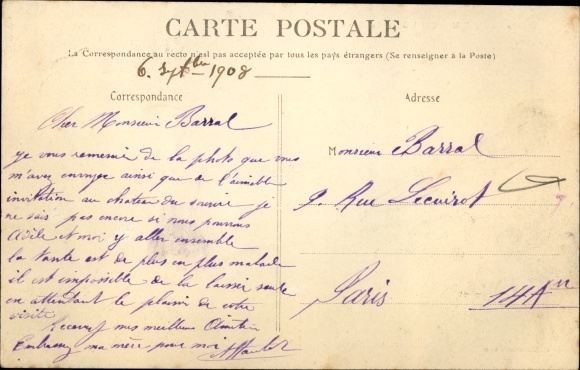 CARTE POSTALE
La Correspondance au recto n'est pas acceptée par tous les pays étrangers (Se renseigner à la Poste)
6 septbre 1908
Correspondance
Cher Monsieur Barral
je vous remercie de la photo que vous
m'avez envoyée ainsi que de l'aimable
invitation au chateau du je
ne sais pas encore si nous pourrons
et moi y aller ensemble
la tante est de plus en plus malade
il est impossible de la laisser seule
en attendant le plaisir de votre
visite
Recevez mes meilleures
Embrassez ma mère pour moi
Adresse
Monsieur Barral
9. Rue Lecuirot
Paris 14 Arr